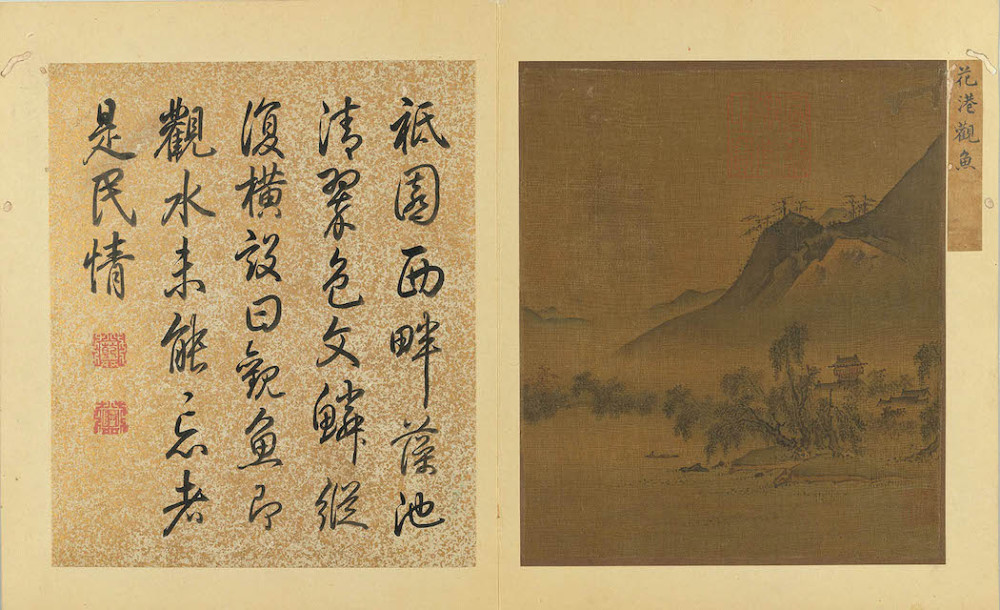 花港觀魚
祗園西畔藻池
清翠色文鱗縱
復橫設曰觀魚即
觀水未能忘者
是民情